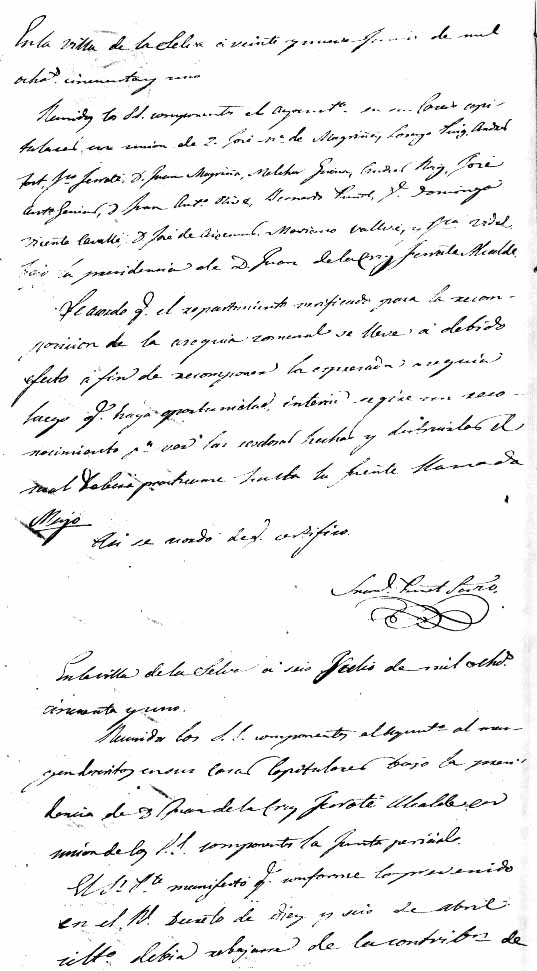 En la villa de la Selva a veinte y nueve Junio de mil
ocho.s cincuenta y uno
Reunidos los S.S. componentes el ayunt.o en sus Casas capi-
tulares, en union de D. José M.a de Magriñá, Lorenzo Puig, Andres
Fort, Fr.co Ferraté, D. Juan Magriñá, Melchor, Andres Puig, José
Ant.o, D. Juan Ant.o, Bernardo, Domingo
Vicente Cavallé, D. José de, Mariano Vallvé, Vidal
bajo la presidencia de D. Juan de la Cruz Ferraté Alcalde
Se acordo q.e el repartimiento verificado para la recom-
posicion de la asequia comunal se lleve a debido
efecto a fin de recomponer la espresada asequia
luego q.e haya oportunidad, interin se un reco-
nocimiento p.a ver las hechas y el
cual deberá practicarse hasta la fuente llamada
Mayó
Asi se acordo de q.e certifico.
En la villa de la Selva a seis Julio de mil ocho.s
cincuenta y uno.
Reunidos los S.S. componentes el Ayunt.o al mar-
gen descritos en sus Casas Capitulares bajo la presi-
dencia de D. Juan de la Cruz Ferraté Alcalde en
union de los S.S. componentes la Junta pericial.
El S.r P.te manifestó q.e conforme lo prevenido
en el R.l Decreto de diez y seis de abril
ult.o debia rebajarse de la contribn. de